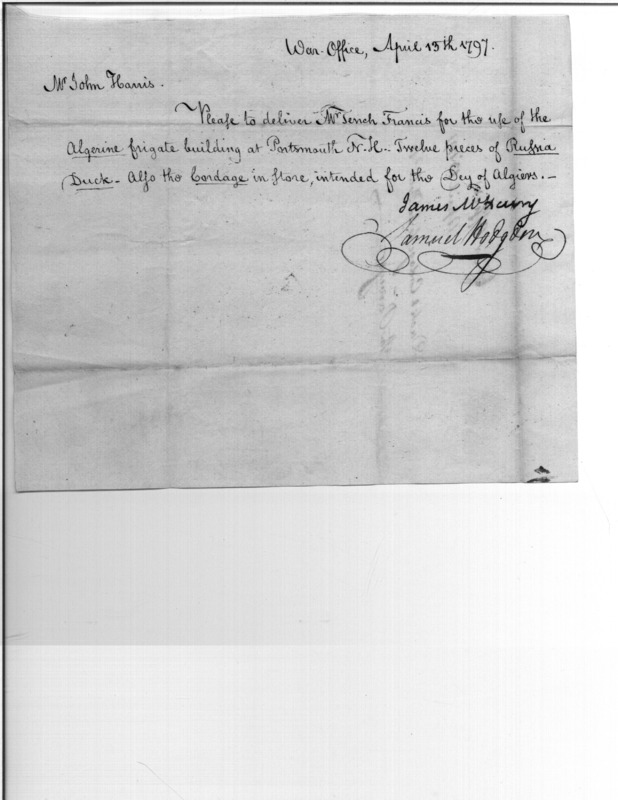 War Office, April 13th 1797.
Mr John Harris.
Please to deliver Mr Tench Francis for the use of the
Algerine frigate building at Portsmouth N.H. Twelve pieces of Russia
Duck - Also the Cordage in Store, intended for the Dey of Algiers. -
James McHenry
Samuel Hodgdon